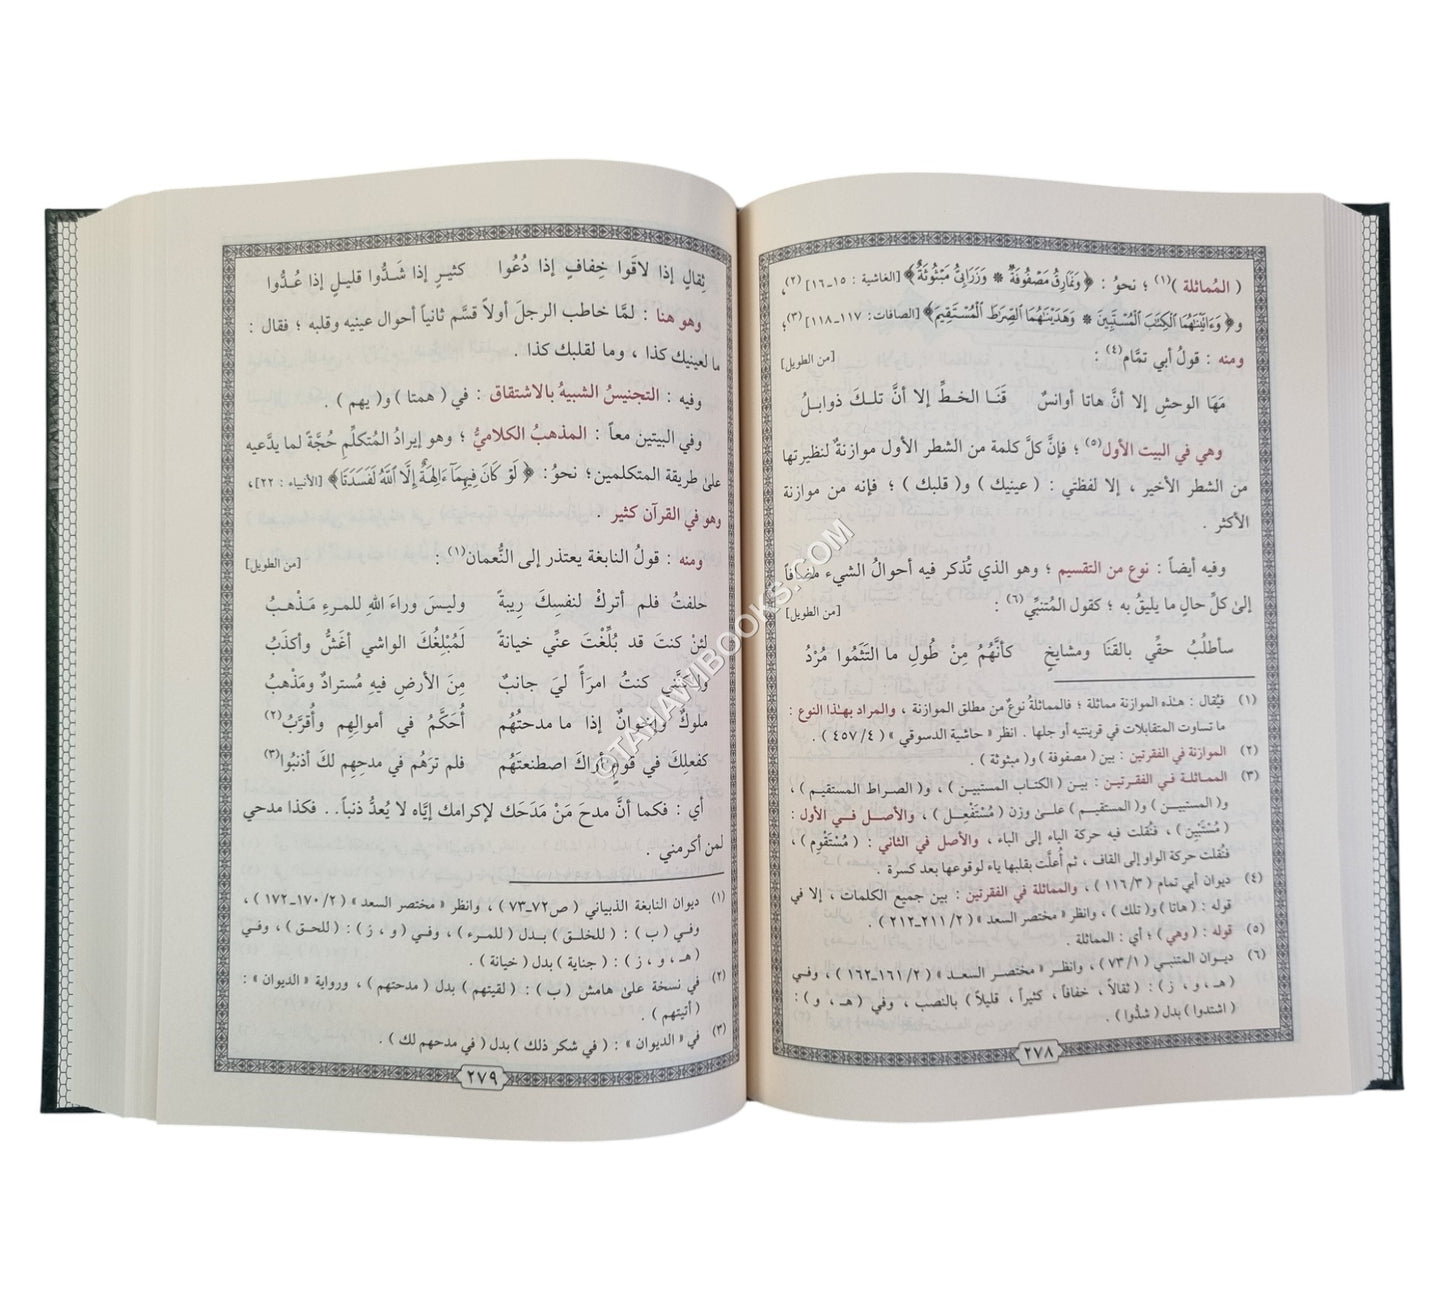 ( المُماثلة )(١) ؛ نحوُ : ﴿ وَنَمَارِقُ مَصْفُوفَةٌ * وَزَرَابِيُّ مَبْثُوثَةٌ ﴾ [الغاشية : ١٥ـ١٦] (٢)،
و﴿ وَءَاتَيْنَٰهُمَا ٱلْكِتَٰبَ ٱلْمُسْتَبِينَ * وَهَدَيْنَٰهُمَا ٱلصِّرَٰطَ ٱلْمُسْتَقِيمَ ﴾ [الصافات: ١١٧ـ١١٨] (٣)؛
ومنه : قولُ أبي تمَّام(٤) : [من الطويل]
مَهَا الوحشِ إلا أنَّ هاتا أوانسٌ قَنَا الخـطِّ إلا أنَّ تلـكَ ذوابـلُ
وهي في البيت الأول(٥) ؛ فإنَّ كلَّ كلمة من الشطر الأول موازنةٌ لنظيرتها
من الشطر الأخير ، إلا لفظتَي : ( عينيك ) و( قلبك ) ؛ فإنه من موازنة
الأكثر .
وفيه أيضاً : نوع من التقسيم ؛ وهو الذي تُذكر فيه أحوالُ الشيء مضافاً
إلىٰ كلِّ حالٍ ما يليقُ به ؛ كقول المُتنبِّي(٦) : [من الطويل]
سأطلُبُ حقِّي بالقَنَا ومشايخٍ كأنَّهُمُ مِنْ طُولِ ما التَثَمُوا مُرْدُ
(١) فيُقال : هـٰذه الموازنة مماثلة ؛ فالمماثلةُ نوعٌ من مطلق الموازنة ، والمراد بهـٰذا النوع :
ما تساوت المتقابلات في قرينتيه أو جلها . انظر « حاشية الدسوقي » ( ٤/ ٤٥٧ ) .
(٢) الموازنة في الفقرتين : بين ( مصفوفة ) و( مبثوثة ) .
(٣) المماثلـة فـي الفقـرتين : بيـن ( الكتـاب المستبين ) ، و( الصـراط المستقيـم ) ،
و( المستبيـن ) و( المستقيـم ) علـىٰ وزن ( مُسْتَفْعِـل ) ، والأصـل فـي الأول :
( مُسْتَبْيِن ) ، فنُقلت فيه حركة الياء إلى الباء ، والأصل في الثاني : ( مُسْتَقْوِم ) ،
فنُقلت حركة الواو إلى القاف ، ثم أُعلَّت بقلبها ياء لوقوعها بعد كسرة .
(٤) ديوان أبي تمام ( ١١٦/٣ ) ، والمماثلة في الفقرتين : بين جميع الكلمات ، إلا في
قوله : ( هاتا ) و( تلك ) ، وانظر « مختصر السعد » ( ٢/ ٢١١ـ٢١٢ ) .
(٥) قوله : ( وهي ) ؛ أي : المماثلة .
(٦) ديـوان المتنبي ( ١/ ٧٣ ) ، وانظـر « مختصـر السعـد » ( ٢/ ١٦١ـ١٦٢ ) ، وفـي
( هـ ، و ، ز ) : ( ثقالاً ، خفافاً ، كثيراً ، قليلاً ) بالنصب ، وفي ( هـ ، و ) :
( اشتدوا ) بدل ( شدُّوا ) .
٢٧٨
ثِقالٍ إذا لاقَوا خِفافٍ إذا دُعُوا كثيـرٍ إذا شَـدُّوا قليـلٍ إذا عُـدُّوا
وهو هنا : لمَّا خاطب الرجلَ أولاً قسَّم ثانياً أحوال عينيه وقلبه ؛ فقال :
ما لعينيك كذا ، وما لقلبك كذا .
وفيه : التجنيسُ الشبيهُ بالاشتقاق : في ( همتا ) و( يهم ) .
وفي البيتين معاً : المذهبُ الكلاميُّ ؛ وهو إيرادُ المُتكلِّمِ حُجَّةً لما يدَّعيه
علىٰ طريقة المتكلمين؛ نحوُ: ﴿ لَوْ كَانَ فِيهِمَآ ءَالِهَةٌ إِلَّا ٱللَّهُ لَفَسَدَتَا ﴾ [الأنبياء : ٢٢]،
وهو في القرآن كثير .
ومنه : قولُ النابغة يعتذر إلى النُّعمان(١) : [من الطويل]
حلفتُ فلم أتركْ لنفسِكَ رِيبةً وليـسَ وراءَ اللهِ للمـرءِ مَـذْهبُ
لئِنْ كنتَ قد بُلِّغْتَ عنِّي خيانةً لَمُبْلِغُكَ الواشي أغَشُّ وأكذَبُ
ولٰكنَّني كنتُ امرَأً ليَ جانبٌ مِنَ الأرضِ فيهِ مُسترادٌ ومَذْهبُ
ملوكٌ وإخوانٌ إذا ما مدحتُهُم أُحَكَّمُ في أموالِهِم وأُقرَّبُ(٢)
كفعلِكَ في قومٍ أراكَ اصطنعتَهُم فلم ترَهُم في مدحِهِم لكَ أذنبُوا(٣)
أي : فكما أنَّ مدحَ مَنْ مَدَحَك لإكرامك إيَّاه لا يُعدُّ ذنباً . . فكذا مدحي
لمن أكرمني .
(١) ديوان النابغة الذبياني ( ص٧٢ـ٧٣ ) ، وانظر « مختصر السعد » ( ٢/ ١٧٠ـ١٧٢ ) ،
وفـي ( ب ) : ( للخلـق ) بـدل ( للمـرء ) ، وفـي ( و ، ز ) : ( للحق ) ، وفـي
( هـ ، و ، ز ) : ( جناية ) بدل ( خيانة ) .
(٢) في نسخة علىٰ هامش ( ب ) : ( لقيتهم ) بدل ( مدحتهم ) ، ورواية « الديوان » :
( أتيتهم ) .
(٣) في « الديوان » : ( في شكر ذلك ) بدل ( في مدحهم لك ) .
٢٧٩
©TAHAWIBOOKS.COM